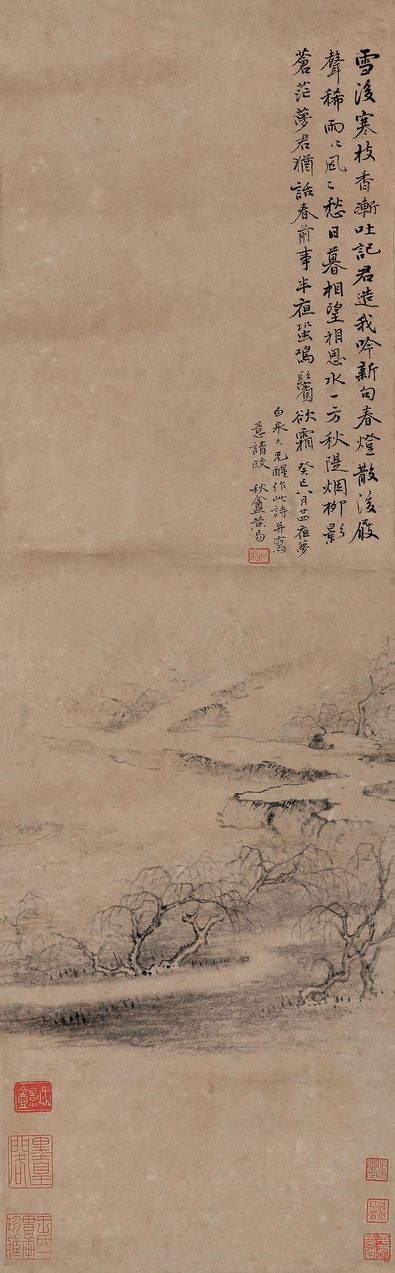 雪後寒枝香漸吐記君造我吟新句春燈散後屐
聲稀雨〻風〻愁日暮相望相思水一方秋隄烟柳影
蒼茫夢君猶話春前事半夜蛩鳴鬢欲霜 癸巳八月廿四夜夢
白泉大兄醒作此詩并寫
意請政 秋盦 易